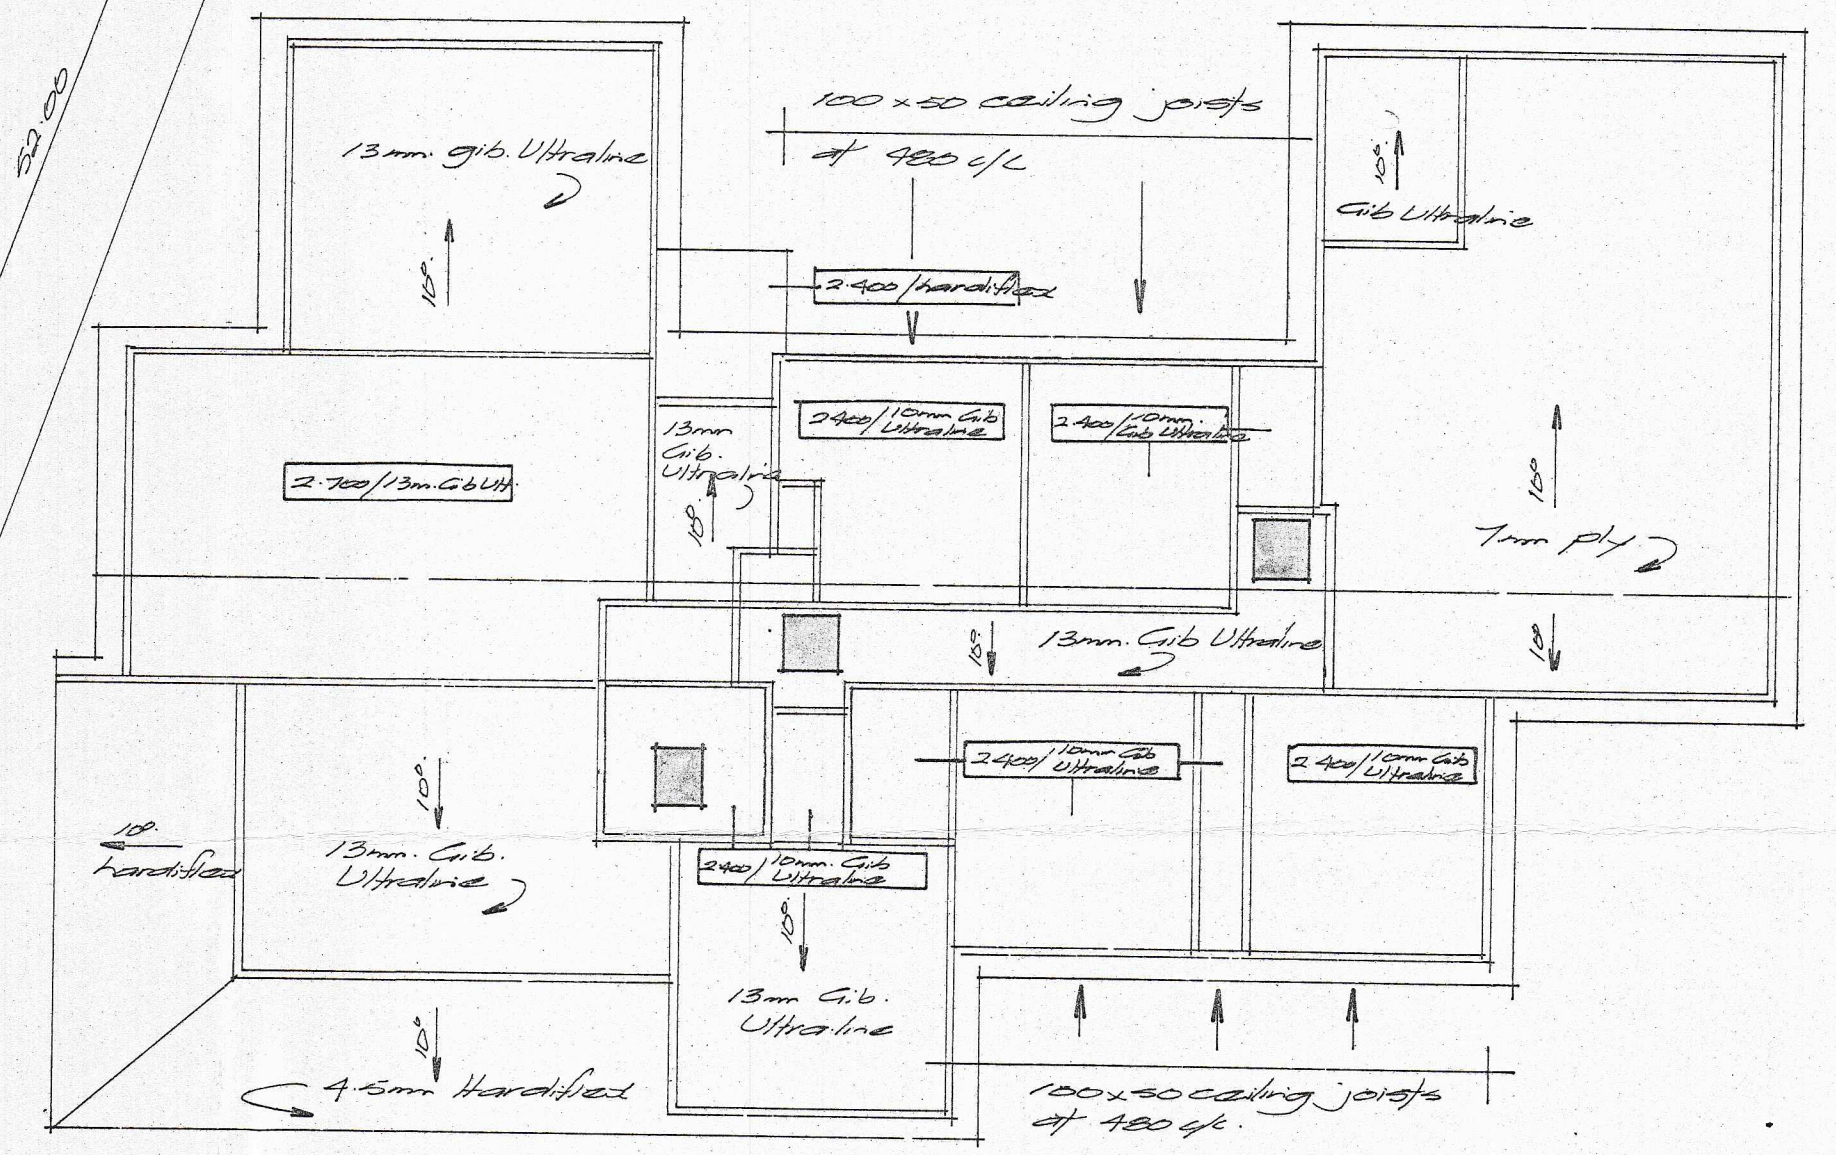 52.00
13mm. gib. Ultraline
10°.
100 x 50 ceiling joists
at 480 c/c
10°.
Gib Ultraline
2.400/hardiflex
2.700/13m.Gib Ult.
13mm
Gib.
Ultraline
10°.
2400/10mm Gib
Ultraline
2.400/10mm.
Gib Ultraline
10°
7mm ply.
10°
10°.
13mm. Gib Ultraline
10°.
hardiflex
10°.
13mm. Gib.
Ultraline
2400/10mm. Gib
Ultraline
10°.
13mm Gib.
Ultraline
2400/10mm Gib
Ultraline
2.400/10mm Gib
Ultraline
10°
4.5mm Hardiflex
100x50 ceiling joists
at 480 c/c.